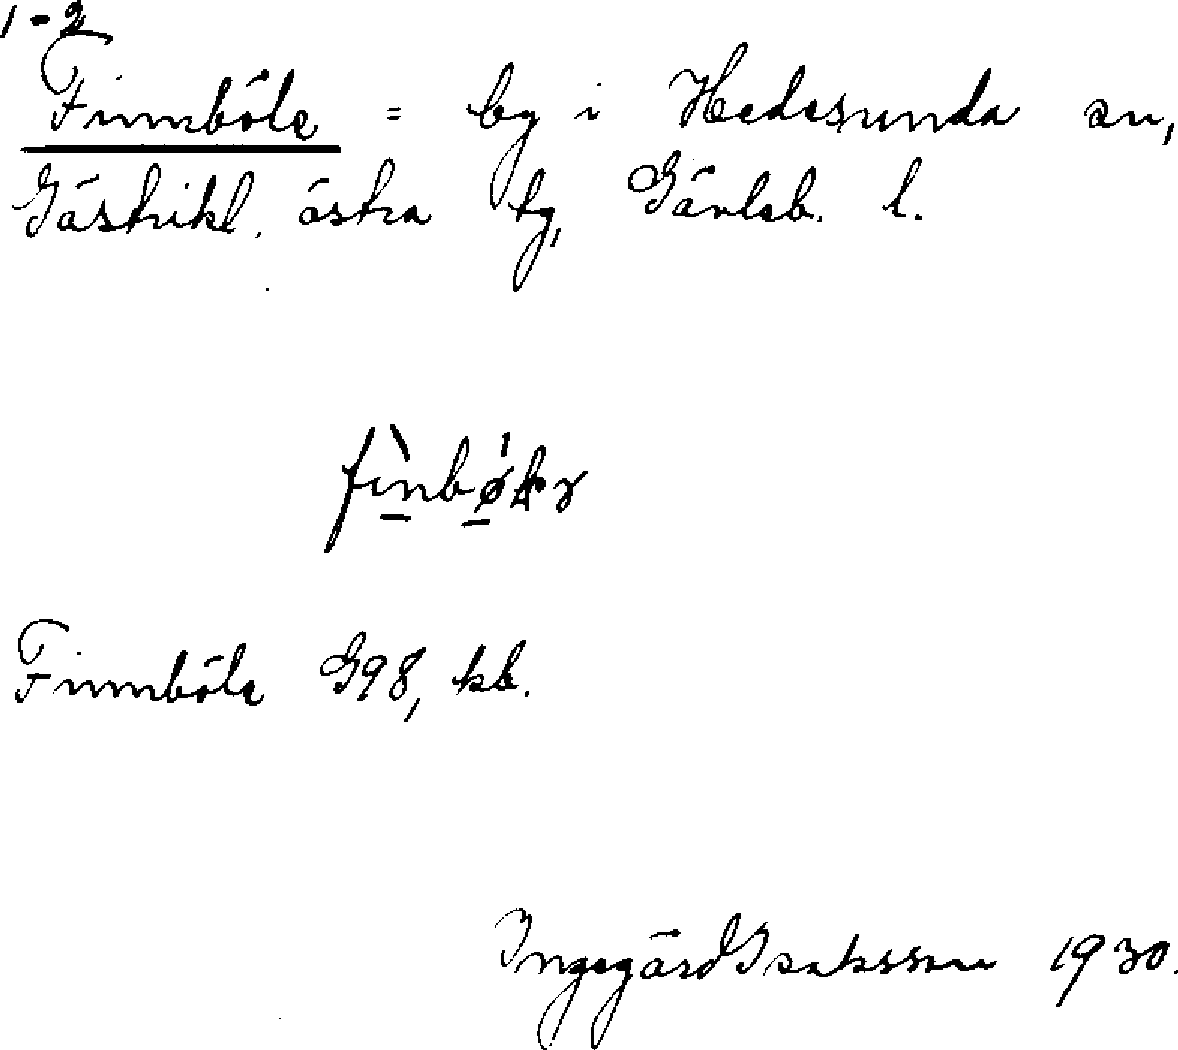 1-2
Finnböle = by i Hedesunda sn,
Gästrikl. östra tg, Gävleb. l.
Finnböle G98, kb.
Ingegärd Isaksson 1930.